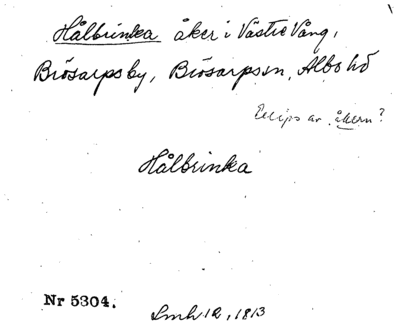 Hålbrinka åker i Västre Vång,
Brösarps by, Brösarps sn, Albo hd
Ellips av åkern?
Hålbrinka
Nr 5304.
Lmh 12, 1813